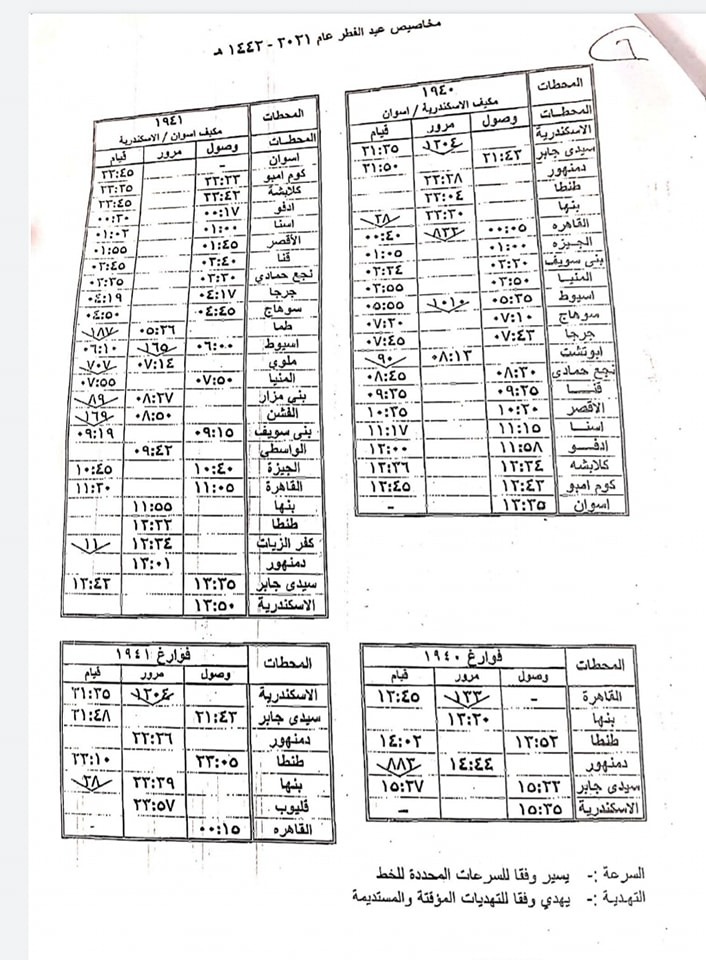 مخاصيص عيد الفطر عام ٢٠٢١ - ١٤٤٢ هـ
٦
المحطات ١٩٤٠
مكيف الاسكندرية / اسوان
المحطات وصول مرور قيام
الاسكندرية ١٢٠٤ ٢١:٣٥
سيدى جابر ٢١:٤٣ ٢١:٥٠
دمنهور ٢٢:٢٨
طنطا ٢٣:٠٤
بنها ٢٣:٣٠ ٢٨
القاهره ٠٠:٠٥ ٨٣٢ ٠٠:٤٠
الجيزه ٠١:٠٠ ٠١:٠٥
بنى سويف ٠٢:٣٠ ٠٢:٣٤
المنيا ٠٣:٥٠ ٠٣:٥٥
اسيوط ٠٥:٣٥ ١٠١٠ ٠٥:٥٥
سوهاج ٠٧:١٠ ٠٧:٢٠
جرجا ٠٧:٤٣ ٠٧:٤٥
ابوتشت ٠٨:١٣ ٩٠
نجع حمادى ٠٨:٣٠ ٠٨:٤٥
قنا ٠٩:٢٥ ٠٩:٣٥
الاقصر ١٠:٢٠ ١٠:٢٥
اسنا ١١:١٥ ١١:١٧
ادفو ١١:٥٨ ١٢:٠٠
كلابشه ١٢:٢٤ ١٢:٢٦
كوم امبو ١٢:٤٣ ١٢:٤٥
اسوان ١٣:٢٥ -
المحطات ١٩٤١
مكيف اسوان / الاسكندرية
المحطات وصول مرور قيام
اسوان - ٢٢:٤٥
كوم امبو ٢٣:٢٣ ٢٣:٢٥
كلابشة ٢٣:٤٣ ٢٣:٤٥
ادفو ٠٠:١٧ ٠٠:٢٠
اسنا ٠١:٠٠ ٠١:٠٢
الأقصر ٠١:٤٥ ٠١:٥٥
قنا ٠٢:٤٠ ٠٢:٤٥
نجع حمادى ٠٣:٣٠ ٠٣:٣٥
جرجا ٠٤:١٧ ٠٤:١٩
سوهاج ٠٤:٤٥ ٠٤:٥٠
طما ٠٥:٢٦ ١٨٧
اسيوط ٠٦:٠٠ ١٦٥ ٠٦:١٠
ملوي ٠٧:١٤ ٧٠٧
المنيا ٠٧:٥٠ ٠٧:٥٥
بني مزار ٠٨:٢٧ ٨٩
الفشن ٠٨:٥٠ ١٦٩
بنى سويف ٠٩:١٥ ٠٩:١٩
الواسطي ٠٩:٤٢
الجيزة ١٠:٤٠ ١٠:٤٥
القاهرة ١١:٠٥ ١١:٢٠
بنها ١١:٥٥
طنطا ١٢:٢٢
كفر الزيات ١٢:٣٤ ١١
دمنهور ١٣:٠١
سيدى جابر ١٣:٣٥ ١٣:٤٢
الاسكندرية ١٣:٥٠
المحطات فوارغ ١٩٤٠
وصول مرور قيام
القاهرة - ١٢٢ ١٢:٤٥
بنها ١٣:٢٠
طنطا ١٣:٥٢ ١٤:٠٢
دمنهور ١٤:٤٤ ٨٨٣
سيدى جابر ١٥:٢٢ ١٥:٢٧
الاسكندرية ١٥:٣٥ -
المحطات فوارغ ١٩٤١
وصول مرور قيام
الاسكندرية ١٢٠٤ ٢١:٣٥
سيدى جابر ٢١:٤٣ ٢١:٤٨
دمنهور ٢٢:٢٦
طنطا ٢٣:٠٥ ٢٣:١٠
بنها ٢٣:٣٩ ٢٨
قليوب ٢٣:٥٧
القاهره ٠٠:١٥ -
السرعة :- يسير وفقا للسرعات المحددة للخط
التهدية :- يهدي وفقا للتهديات المؤقتة والمستديمة